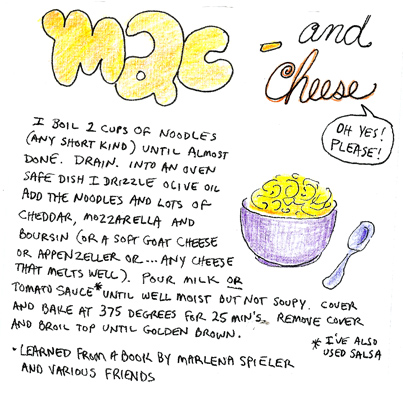 mac - and
Cheese
OH YES!
PLEASE!
I BOIL 2 CUPS OF NOODLES
(ANY SHORT KIND) UNTIL ALMOST
DONE. DRAIN. INTO AN OVEN
SAFE DISH I DRIZZLE OLIVE OIL
ADD THE NOODLES AND LOTS OF
CHEDDAR, MOZZARELLA AND
BOURSIN (OR A SOFT GOAT CHEESE
OR APPENZELLER OR... ANY CHEESE
THAT MELTS WELL). POUR MILK OR
TOMATO SAUCE* UNTIL WELL MOIST BUT NOT SOUPY. COVER
AND BAKE AT 375 DEGREES FOR 25 MIN'S. REMOVE COVER
AND BROIL TOP UNTIL GOLDEN BROWN.
* I'VE ALSO
USED SALSA
• LEARNED FROM A BOOK BY MARLENA SPIELER
AND VARIOUS FRIENDS